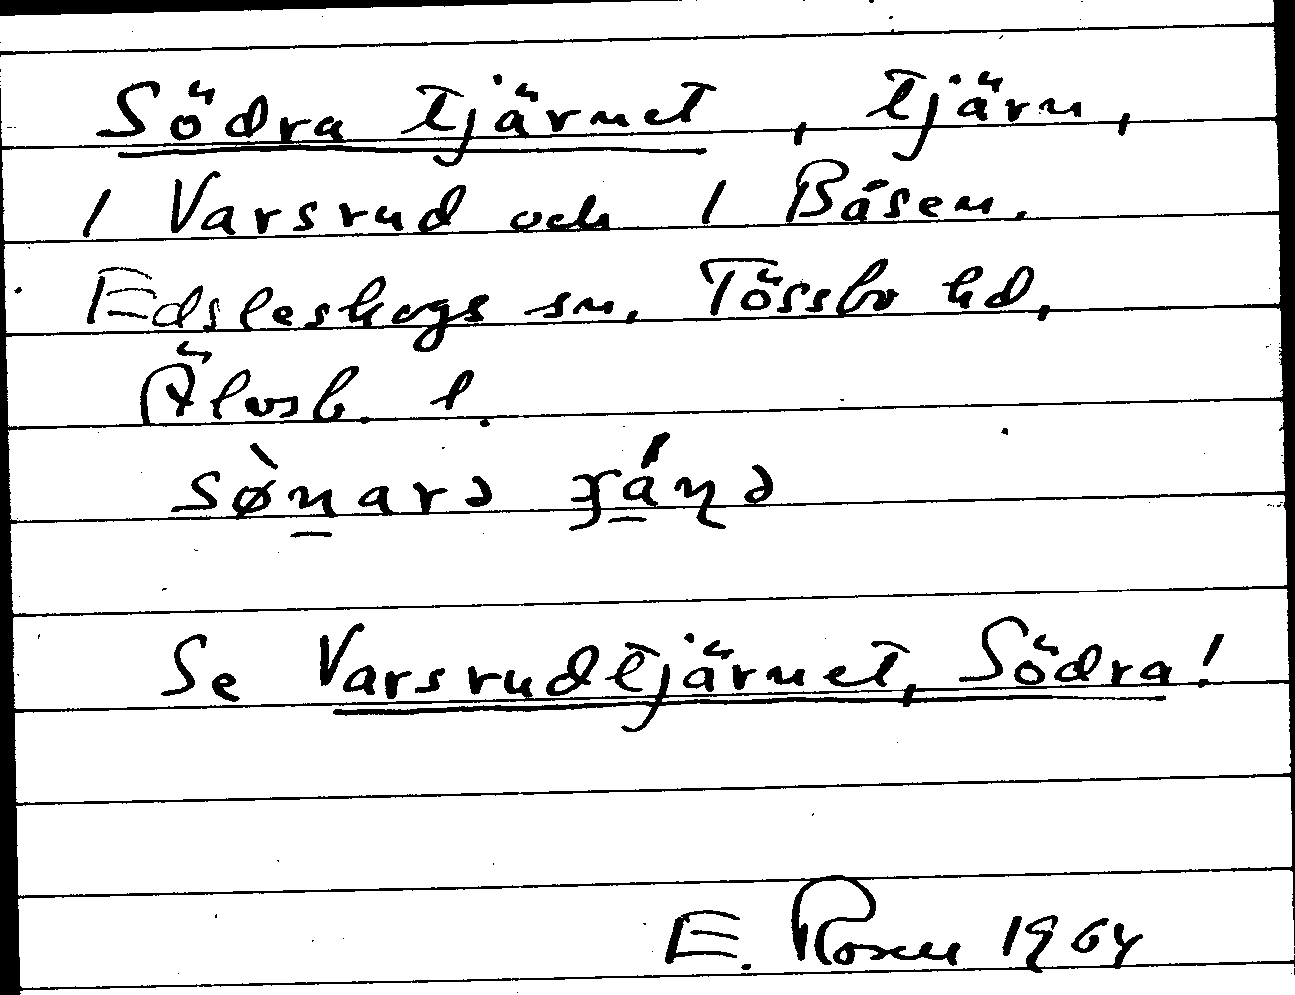 Södra tjärnet, tjärn,
1 Varsrud och 1 Båsen.
Edsleskogs sn. Tössbo hd,
Älvsb. l.
Se Varsrudtjärnet, Södra!
E. Rosen 1964